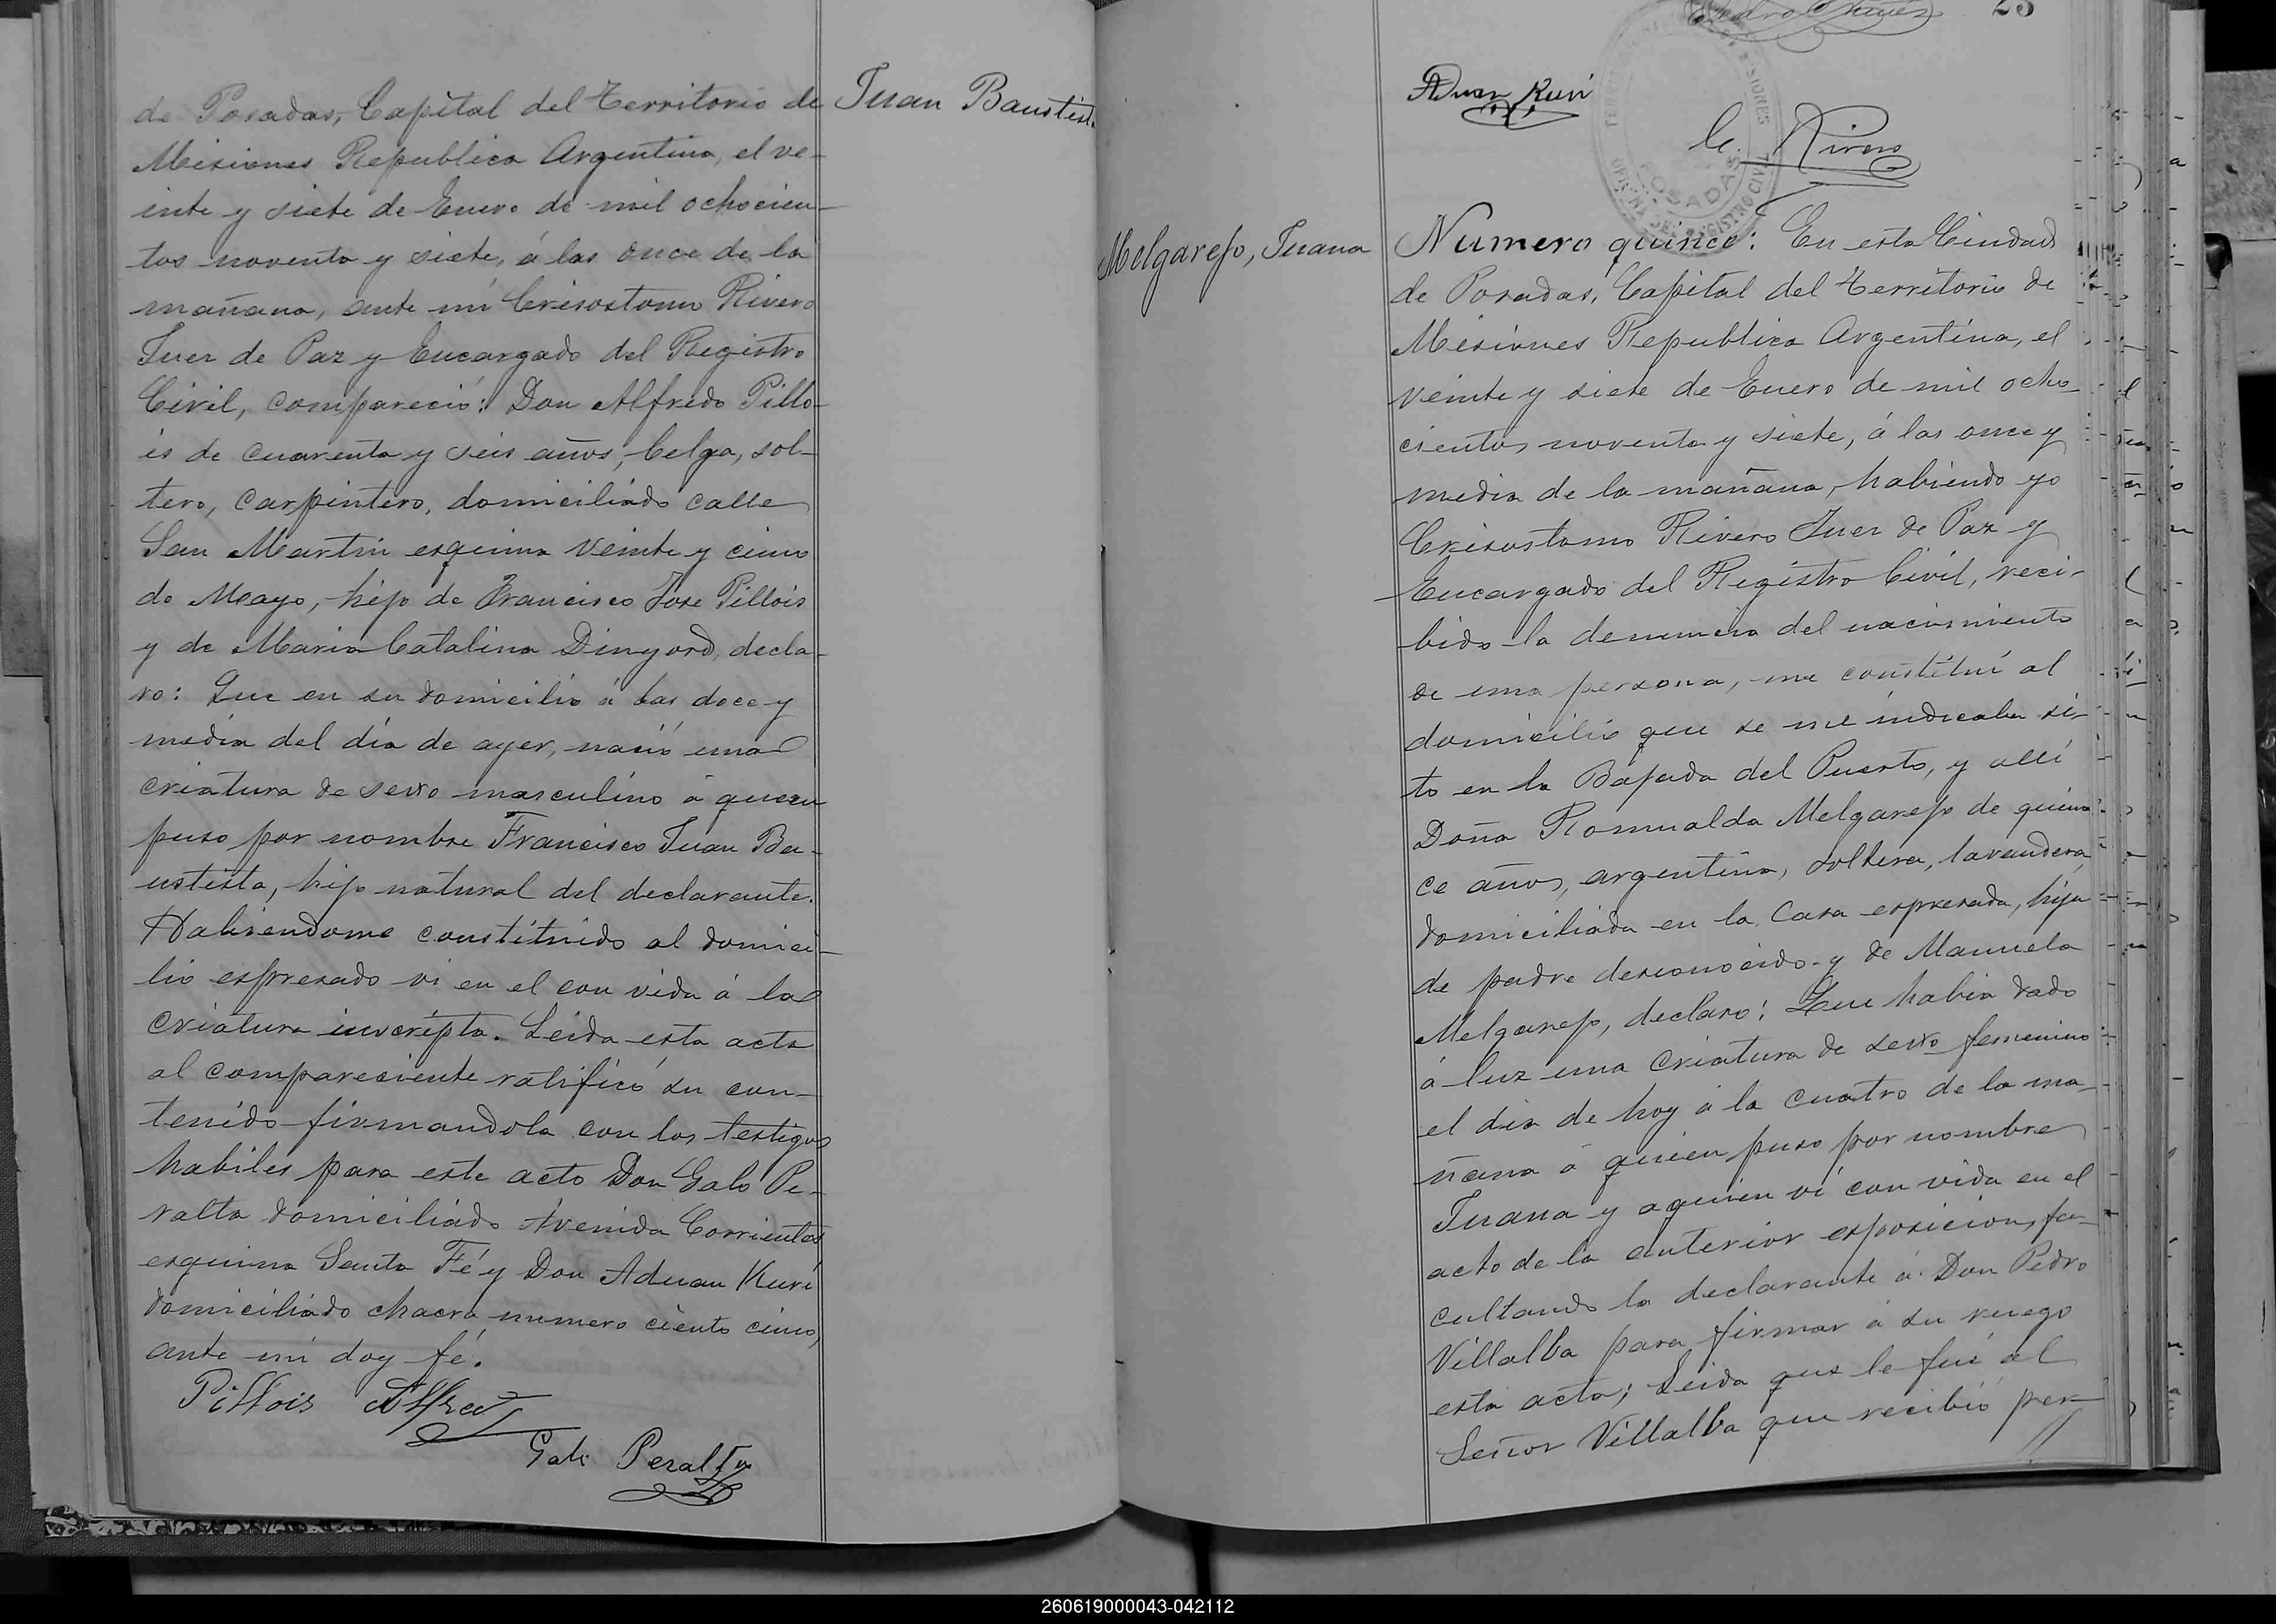 de Posadas, Capital del Territorio de
Misiones Republica Argentina, el ve-
inte y siete de Enero de mil ochocien-
tos noventa y siete, á las once de la
mañana, ante mí Crisostomo Rivero
Juez de Paz y Encargado del Registro
Civil, compareció: Don Alfredo Pillo-
is de cuarenta y seis años, belga, sol-
tero, carpintero, domiciliado calle
San Martin esquina veinte y cinco
de Mayo, hijo de Francisco Jose Pillois
y de Maria Catalina Dinyord, decla-
ro: Que en su domicilio á las doce y
media del dia de ayer, nació una
criatura de sexo masculino á quien
puso por nombre Francisco Juan Ba-
ustista, hijo natural del declarante.
Habiendome constituido al domici-
lio espresado vi en el con vida á la
criatura inscripta. Leida esta acta
al compareciente ratificó su con-
tenido firmandola con los testigos
habiles para este acto Don Galo Pe-
ralta domiciliado Avenida Corrientes
esquina Santa Fé y Don Aduan Kuri
domiciliado chacra numero ciento cinco,
ante mi doy fé.
Pillois Alfred
Galo Peralta
Juan Bautista
23
Aduan Kuri
C. Rivero
POSADAS
OFICINA DEL REGISTRO CIVIL
Melgarejo, Juana
Numero quince: En esta Ciudad
de Posadas, Capital del Territorio de
Misiones Republica Argentina, el
veinte y siete de Enero de mil ocho-
cientos noventa y siete, á las once y
media de la mañana, habiendo yo
Crisostomo Rivero Juez de Paz y
Encargado del Registro Civil, reci-
bido la denuncia del nacimiento
de una persona, me constituí al
domicilio que se me indicaba si-
to en la Bajada del Puerto, y allí
Doña Romualda Melgarejo de quin
ce años, argentina, soltera, lavandera
domiciliada en la casa espresada, hija
de padre desconocido y de Manuela
Melgarejo, declaro: Que habia dado
á luz una criatura de sexo femenino
el dia de hoy á la cuatro de la ma
ñana á quien puso por nombre
Juana y a quien vi con vida en el
acto de la anterior esposicion, fa-
cultando la declarante á Don Pedro
Villalba para firmar á su ruego
esta acta; Leida que le fué al
Señor Villalba que recibió per-
260619000043-042112